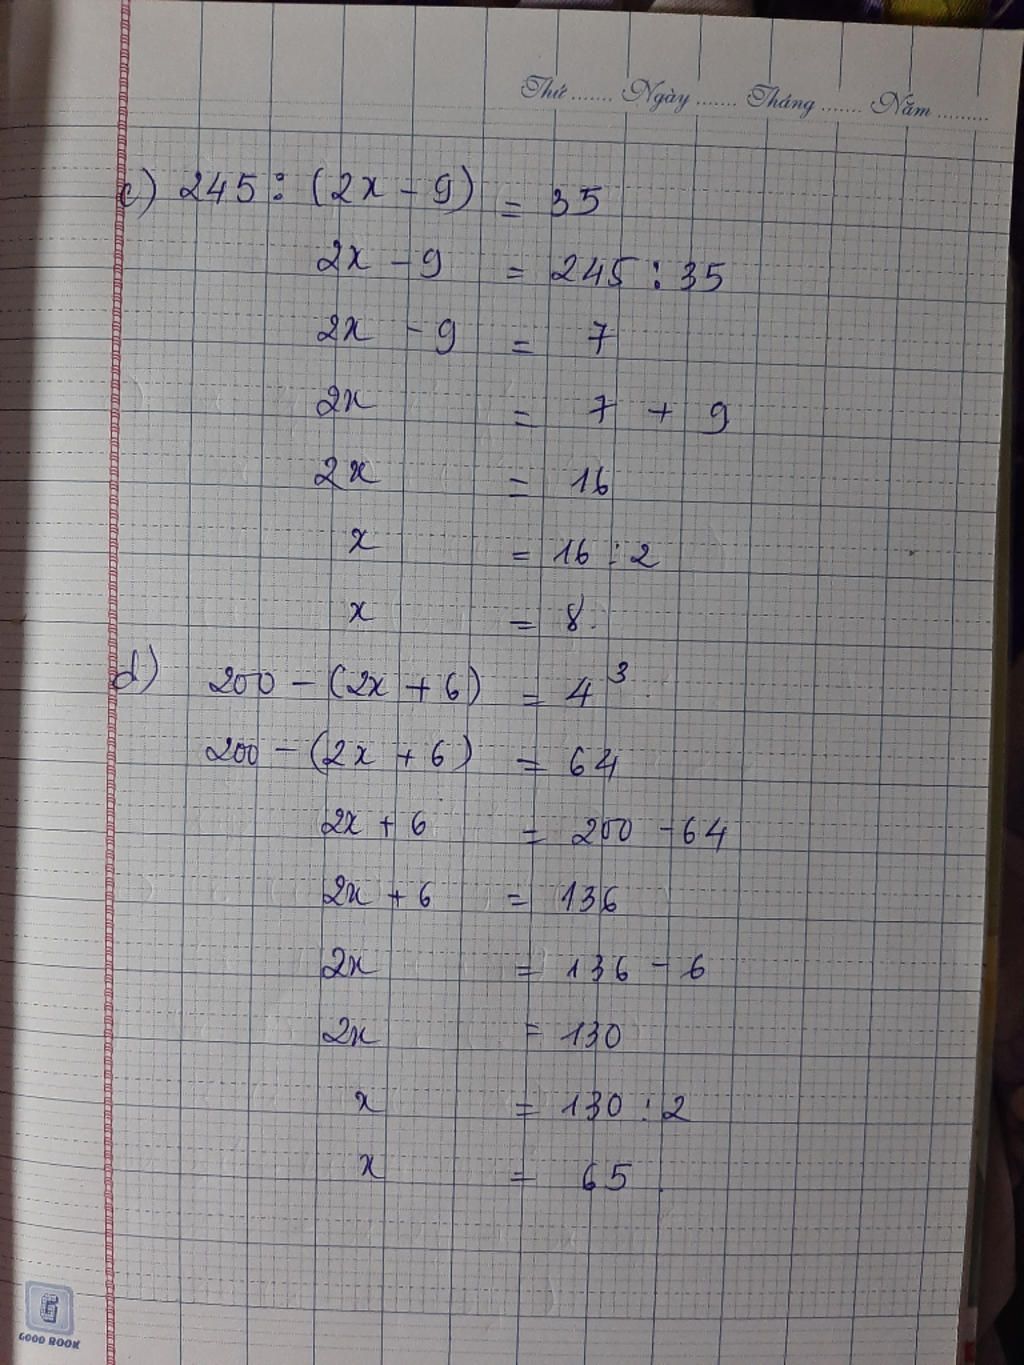 Thứ ....... Ngày ....... Tháng ....... Năm .........
c) 245 : (2x - 9) = 35
2x - 9 = 245 : 35
2x - 9 = 7
2x = 7 + 9
2x = 16
x = 16 : 2
x = 8.
d) 200 - (2x + 6) = 4³
200 - (2x + 6) = 64
2x + 6 = 200 - 64
2x + 6 = 136
2x = 136 - 6
2x = 130
x = 130 : 2
x = 65
G
GOOD BOOK